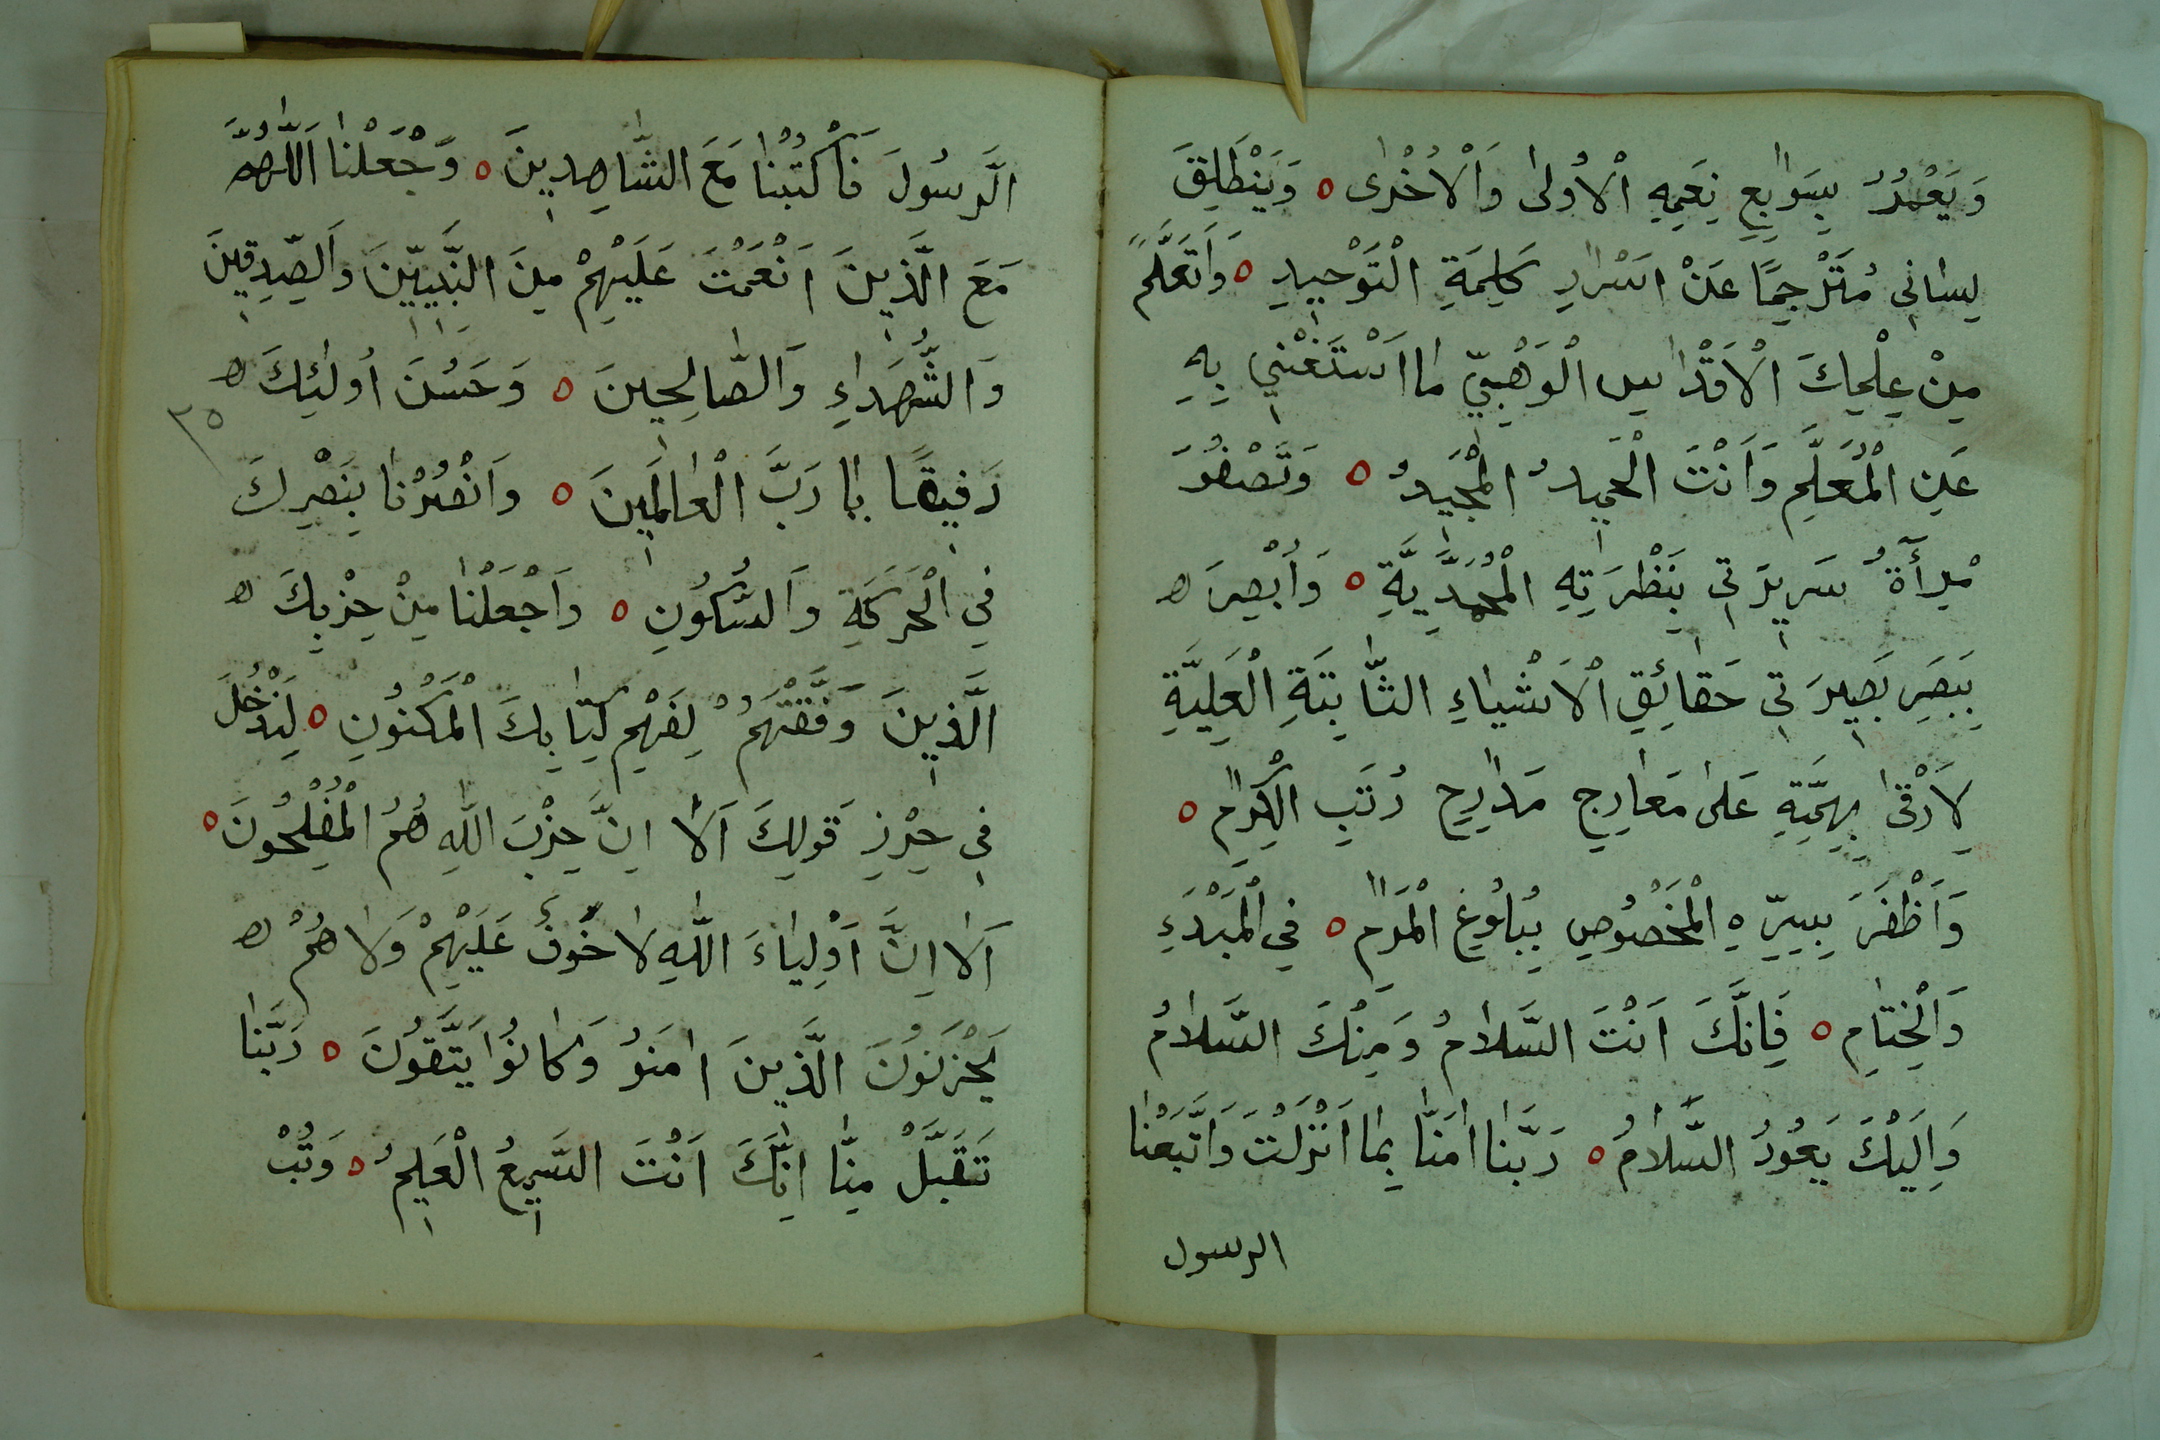 وَيَعْمُرُ بِسَوَابِغِ نِعَمِهِ الْأُولٰى وَالْأُخْرٰى ه وَيَنْطَلِقَ
لِسَانِي مُتَرْجِمًا عَنْ اَسْرَارِ كَلِمَةِ الْتَوْحِيدِ ه وَاَتَعَلَّمَ
مِنْ عِلْمِكَ الْاَقْدَسِ الْوَهْبِيِّ مَا اَسْتَغْنِي بِهِ
عَنِ الْمُعَلِّمِ وَاَنْتَ الْحَمِيدُ الْمَجِيدُ ه وَتَصْفُوَ
مِرْأٰةُ سَرِيرَتِي بِنَظْرَتِهِ الْمُحَمَّدِيَّةِ ه وَاُبْصِرَ ه
بِبَصَرِ بَصِيرَتِي حَقَائِقِ الْاَشْيَاءِ الثَّابِتَةِ الْعَلِيَّةِ
لِاَرْقٰى بِهِمَّتِهِ عَلٰى مَعَارِجِ مَدَارِجِ رُتَبِ الْكِرَامِ ه
وَاَظْفَرَ بِسِرِّهِ الْمَخْصُوصِ بِبُلُوغِ الْمَرَامِ ه فِي الْمَبْدَءِ
وَالْخِتَامِ ه فَاِنَّكَ اَنْتَ السَّلَامُ وَمِنْكَ السَّلَامُ
وَاِلَيْكَ يَعُودُ السَّلَامُ ه رَبَّنَا اٰمَنَّا بِمَا اَنْزَلْتَ وَاتَّبَعْنَا
الرسول
الرَّسُولَ فَاكْتُبْنَا مَعَ الشَّاهِدِينَ ه وَجْعَلْنَا اَللّٰهُمَّ
مَعَ الَّذِينَ اَنْعَمْتَ عَلَيْهِمْ مِنَ النَّبِيِّينَ وَالصِّدِقِينَ
وَالشُّهَدَاءِ وَالصَّالِحِينَ ه وَحَسُنَ اُولٰئِكَ ه
٣٥
رَفِيقًا يَا رَبَّ الْعَالَمِينَ ه وَانْصُرْنَا بِنَصْرِكَ
فِي الْحَرَكَةِ وَالسُّكُونِ ه وَاجْعَلْنَا مِنْ حِزْبِكَ ه
الَّذِينَ وَفَّقْتَهُمْ لِفَهْمِ كِتَابِكَ الْمَكْنُونِ ه لِنَدْخُلَ
فِي حِرْزِ قَوْلِكَ اَلَا اِنَّ حِزْبَ اللّٰهِ هُمُ الْمُفْلِحُونَ ه
اَلَا اِنَّ اَوْلِيَاءَ اللّٰهِ لَا خَوْفٌ عَلَيْهِمْ وَلَا هُمْ ه
يَحْزَنُونَ الَّذِينَ اٰمَنُو وَكَانُوا يَتَّقُونَ ه رَبَّنَا
تَقَبَّلْ مِنَّا اِنَّكَ اَنْتَ السَّمِيعُ الْعَلِيمُ ه وَتُبْ